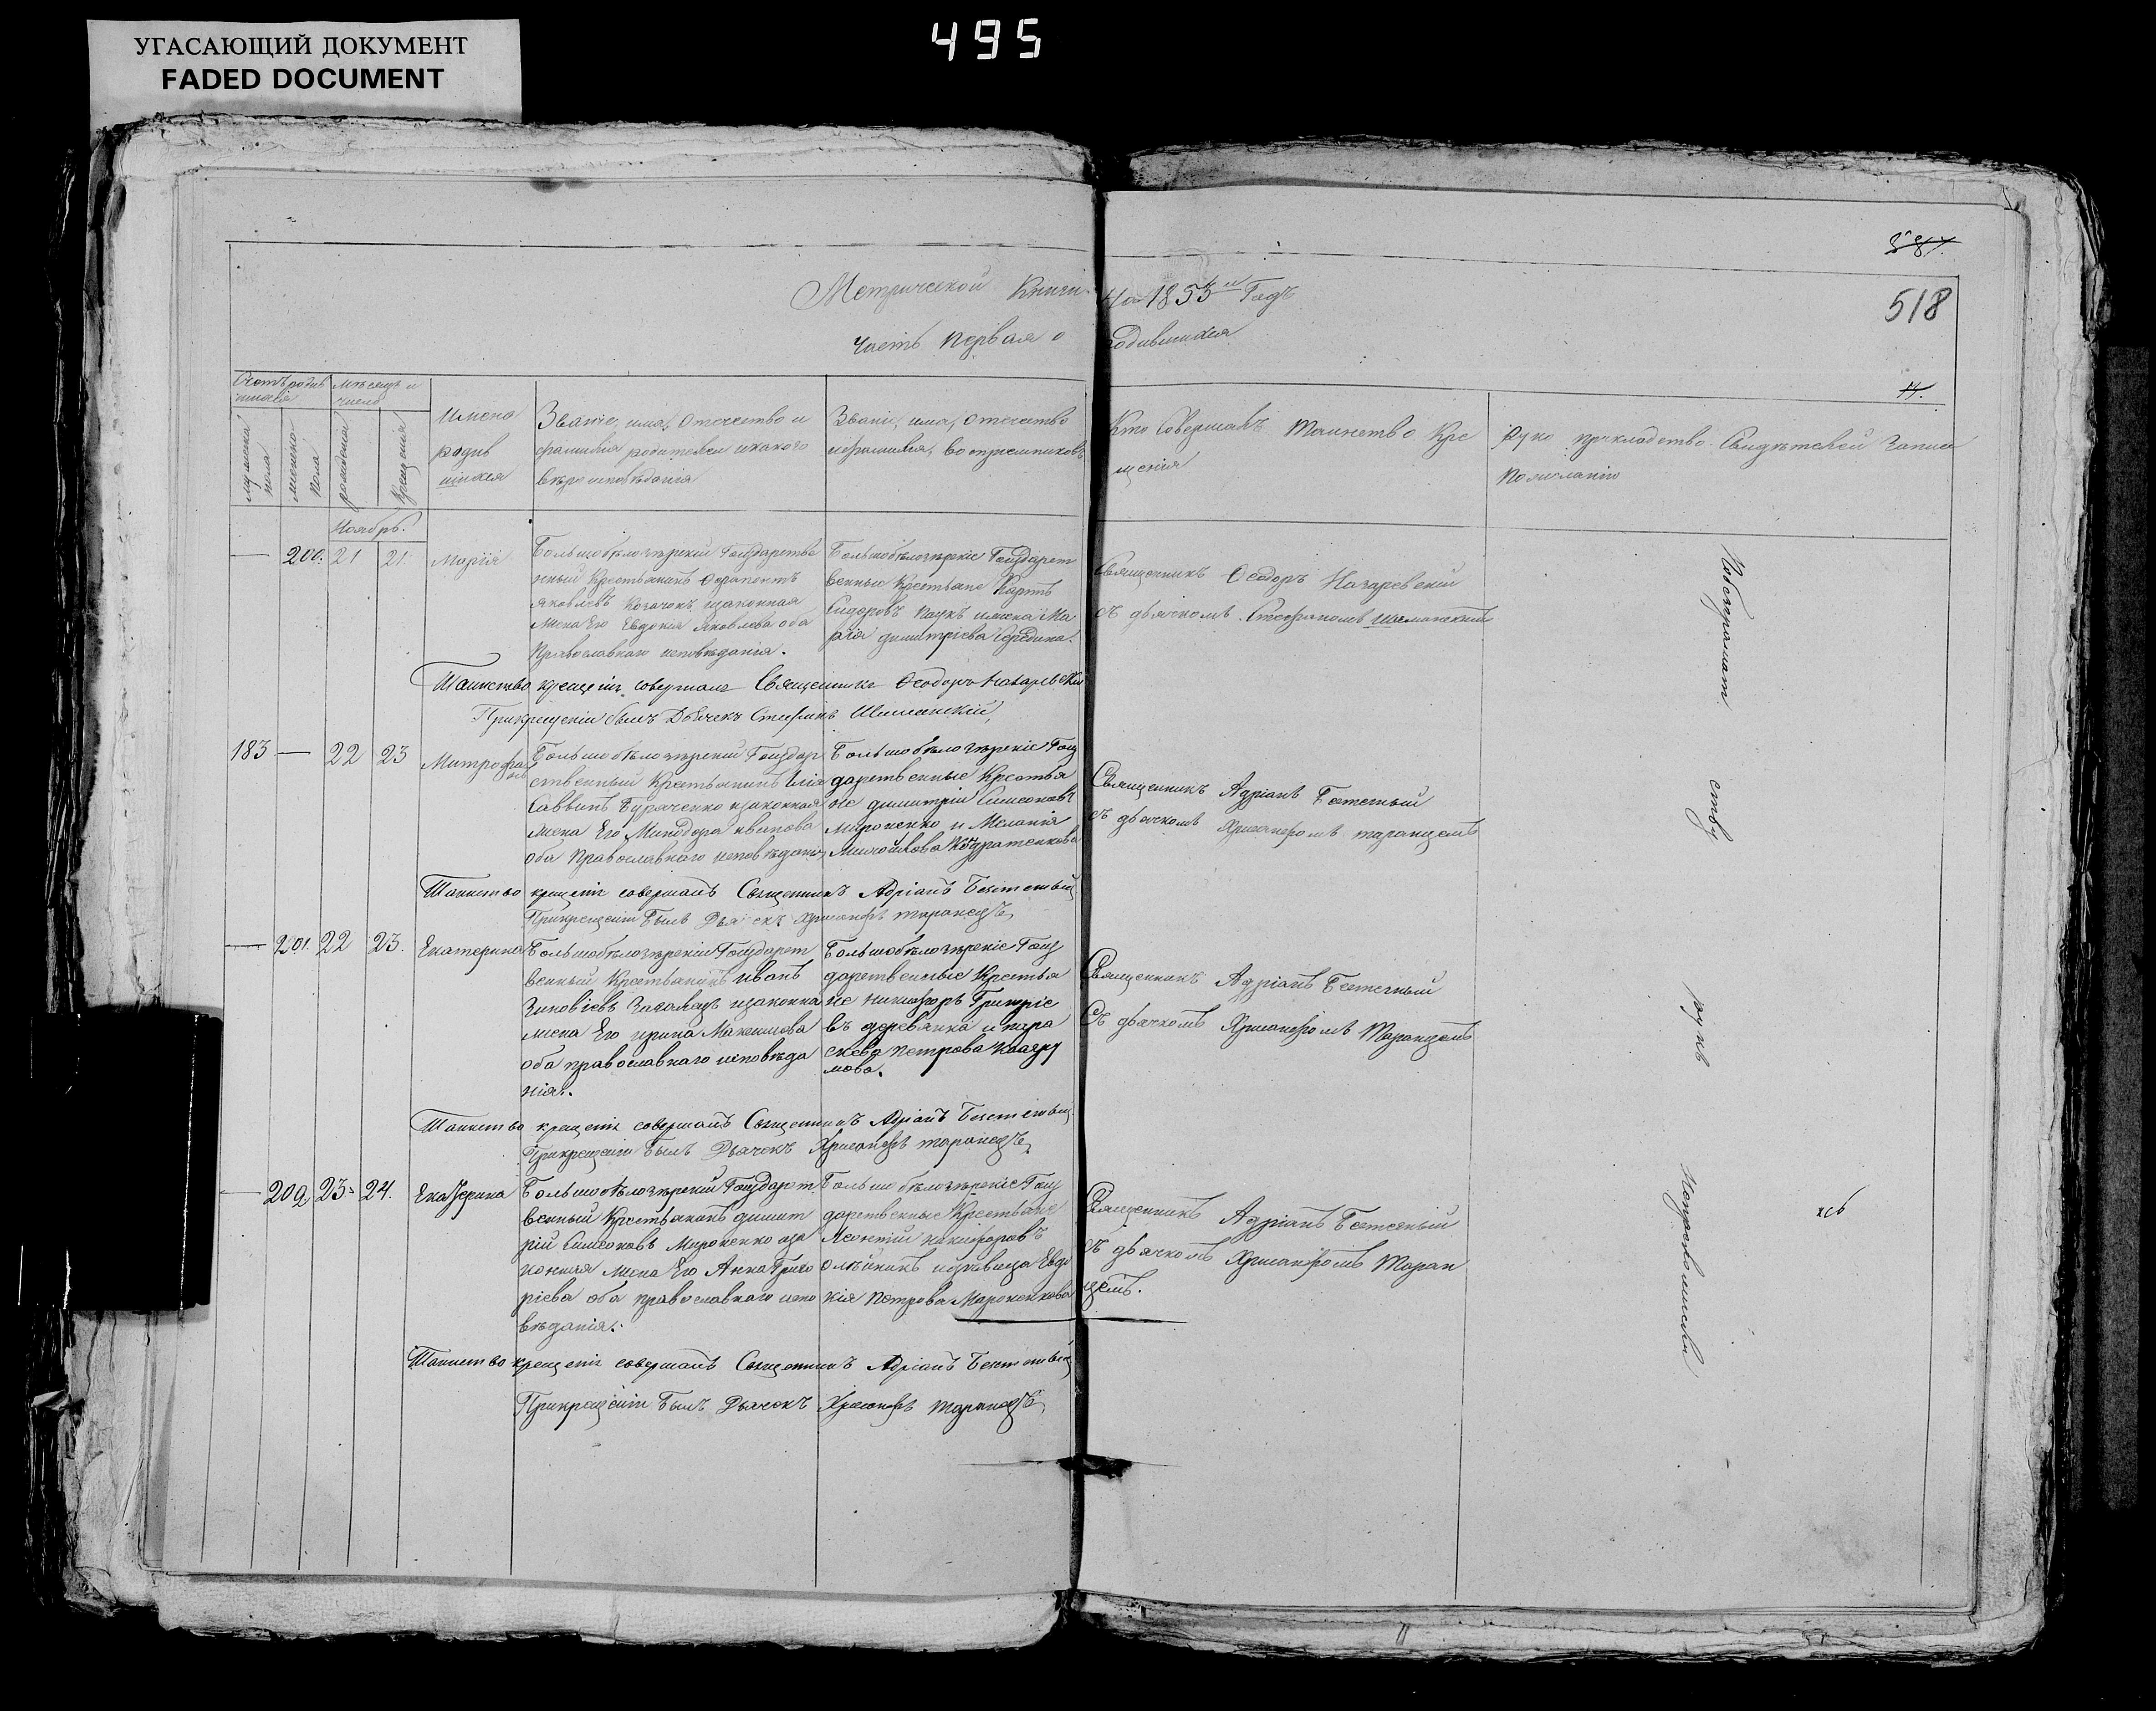 УГАСАЮЩИЙ ДОКУМЕНТ
FADED DOCUMENT
495
518
Метрической Книги На 1853й Годъ
Часть Первая о родившихся
Счетъ родив
шихся
Мѣсяцъ и
число
мужеска
пола
женска
пола
рожденія
Крещенія
Имена
родив
шихся
Званіе, имя, Отечество и
фамилія родителей и какого
вѣроисповѣданія
Званіе, имя, отечество
и фамилія, Воспріемниковъ
Кто Совершалъ Таинство Кре
щенія
Рукоприкладство Свидѣтелей Записи
по желанію
Ноябрь.
200. 21 21. Марія
Большобѣлозѣрскій Государстве
нный Крестьянинъ Ѳерапонтъ
Яковлевъ Козачокъ, изаконная
жена Его Евдокія Яковлева оба
Православнаго исповѣданія.
Большобѣлозѣрскіе Государст
венные Крестьяне Карпъ
Сидоровъ Паукъ и жена Ма
рія Димитріева Середина.
Священникъ Ѳеодоръ Назаревскій
съ дьячкомъ Стефаномъ Шиманскимъ
Таинство крещенія совершалъ Священникъ Ѳеодоръ Назаревскій
При крещеніи былъ Дьячекъ Стефанъ Шиманскій,
183 22 23 Митрофанъ
Большобѣлозѣрский Государ
ственный Крестьянинъ Илія
Саввинъ Бураченко изаконная
жена Его Минодора Иванова
оба Православнаго исповѣданія
Большобѣлозѣрскіе Госу
дарственные Крестья
не Димитрій Симеоновъ
Мироненко и Меланія
Священникъ Адріанъ
съ дьячкомъ Хрисанфомъ Таранцемъ
Таинство крещенія совершалъ Священникъ Адріанъ
При крещеніи Былъ Дьячекъ Хрисанфъ Таранецъ,
201. 22 23. Екатерина
Большобѣлозѣрскій Государст
венный Крестьянинъ Иванъ
Зиновіевъ изаконна
жена Его Ирина Максимова
оба православнаго исповѣда
нія.
Большобѣлозѣрскіе Госу
дарственные Крестья
не Никифоръ Григоріе
въ Деревянка и Пара
скева Петрова
Священникъ Адріанъ
Съ дьячкомъ Хрисанфомъ Таранцемъ
Таинство крещенія совершалъ Священникъ Адріанъ
При крещеніи Былъ Дьячекъ Хрисанфъ Таранецъ,
202. 23. 24. Екатерина
Большобѣлозѣрский Государст
венный Крестьянинъ Димит
рій Симеоновъ Мироненко иза
конная жена Его Анна Григо
ріева оба православнаго испо
вѣданія.
Большобѣлозѣрскіе Госу
дарственные Крестьяне
Леонтій Никифоровъ
Олѣйникъ и дѣвица Евдо
кія Петрова Мироненкова
Священникъ Адріанъ
съ дьячкомъ Хрисанфомъ Таран
цемъ.
Таинство крещенія совершалъ Священникъ Адріанъ
При крещеніи Былъ Дьячекъ Хрисанфъ Таранецъ,
По безграмот
ству
рукъ